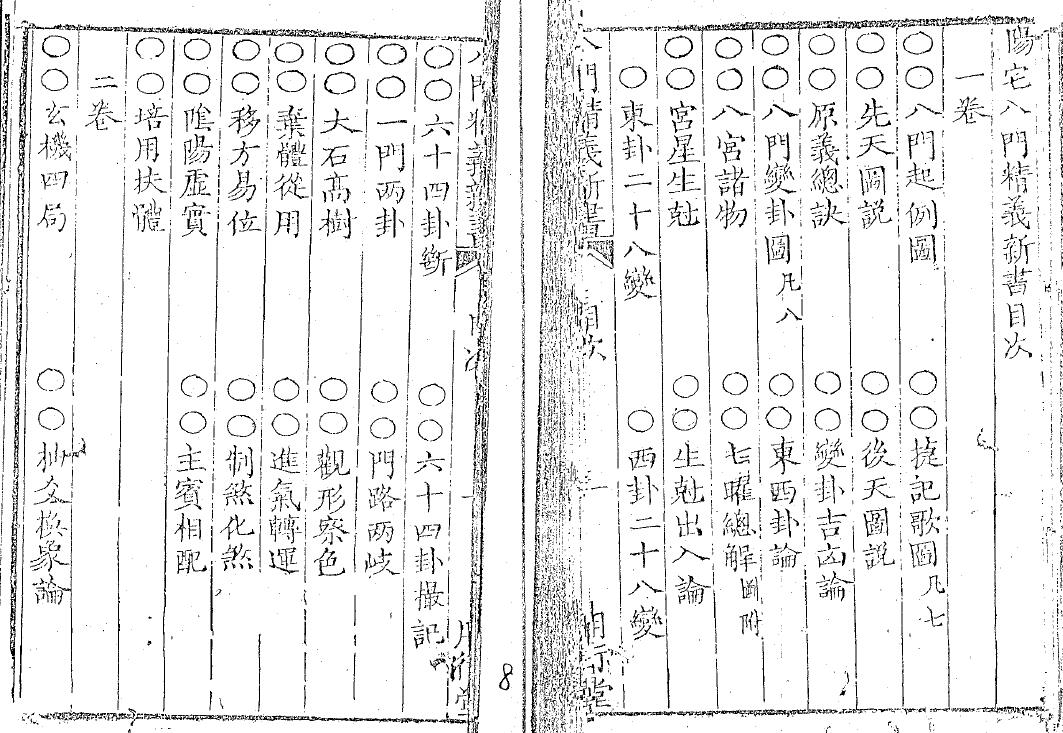 陽宅八門精義新書目次
一卷
○○八門起例圖 ○○捷記歌圖凡七
○○先天圖説 ○○後天圖説
○○原義總訣 ○○變卦吉凶論
○○八門變卦圖凡八 ○○東西卦論
○○八宮諸物 ○○七曜總解圖附
○○宮星生尅 ○○生尅出入論
○東卦二十八變 ○西卦二十八變
八門精義新書 目次
○○六十四卦斷 ○○六十四卦撮記
○○一門两卦 ○○門路两岐
○○大石髙樹 ○○觀形察色
○○棄體從用 ○○進氣轉運
○○移方易位 ○○制煞化煞
○○陰陽虛實 ○○主賓相配
○○培用扶體
二卷
○○玄機四局 ○○抽爻換象論
8